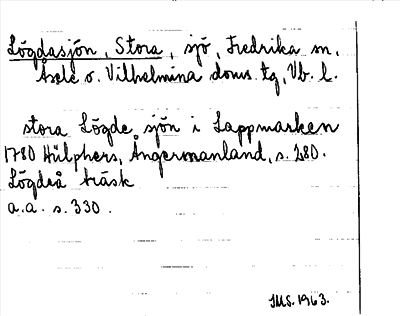 Lögdasjön, Stora, sjö, Fredrika sn,
Åsele o. Vilhelmina doms. tg, Vb. l.
stora Lögde sjön i Lappmarken
1780 Hülphers, Ångermanland, s. 280.
Lögdeå träsk
a.a. s. 330.
IMS. 1963.